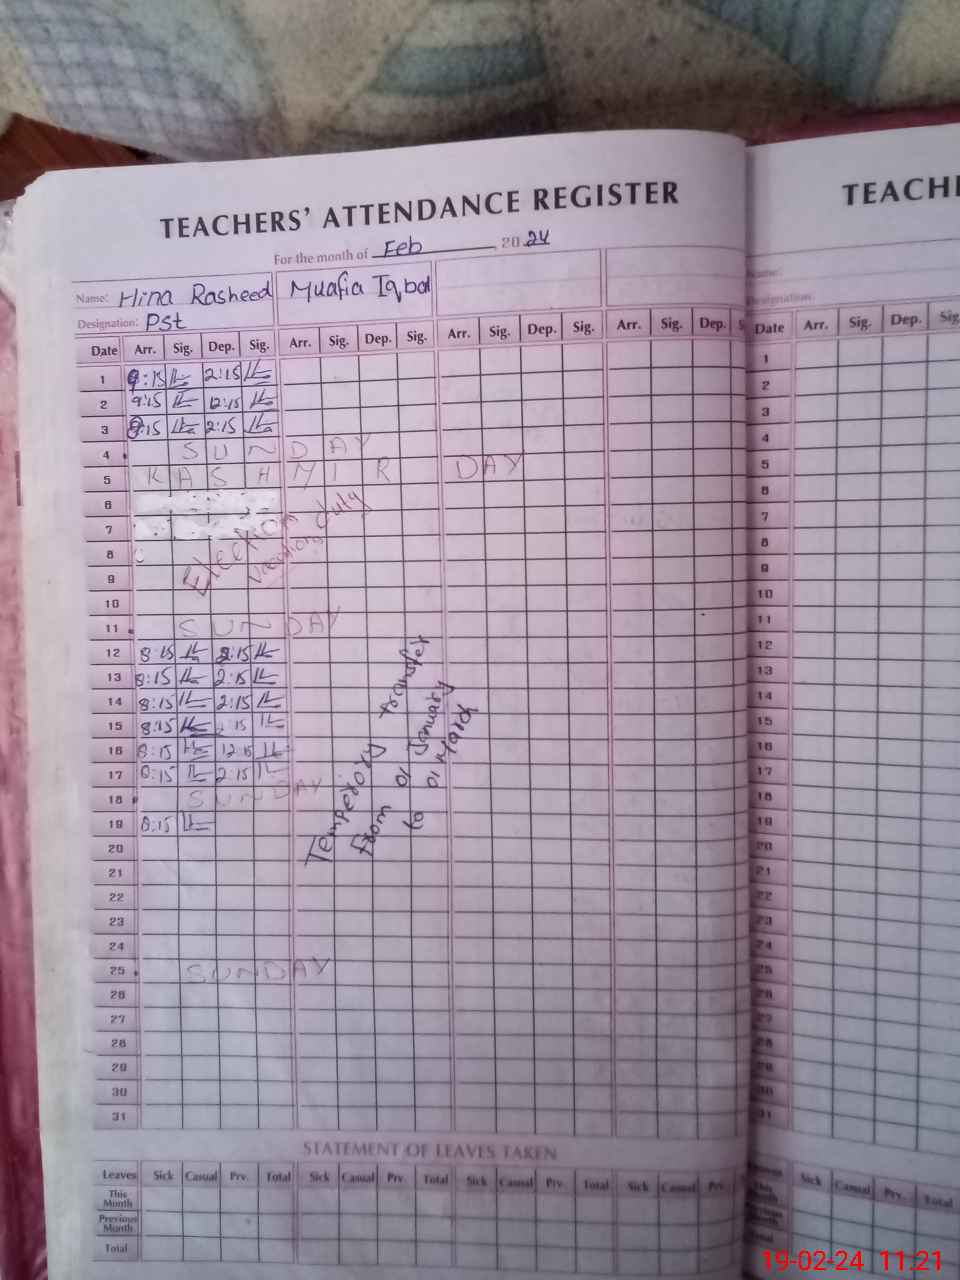 TEACHERS' ATTENDANCE REGISTER
For the month of Feb 2024
Name: Hina Rasheed Muafia Iqbal
Designation: Pst
Date Arr. Sig. Dep. Sig. Arr. Sig. Dep. Sig. Arr. Sig. Dep. Sig. Arr. Sig. Dep. S
1 9:15 2:15
2 9:15 12:15
3 :15 2:15
4 SUNDAY
5 KASHMIR DAY
6
7
8
9
10
Election duty
vacations
11 SUNDAY
12 8:15 2:15
13 8:15 2:15
14 8:15 2:15
15 8:15 2:15
16 8:15 12:15
17 8:15 2:15
18 SUNDAY
19 8:15
20
21
22
23
24
25 SUNDAY
26
27
28
29
30
31
Temperory transfer
From 01 January
to 01 March
STATEMENT OF LEAVES TAKEN
Leaves Sick Casual Prv. Total Sick Casual Prv. Total Sick Casual Prv. Total Sick Casual Prv.
This Month
Previous Month
Total
TEACH
Name:
Designation:
Date Arr. Sig. Dep. Sig
1
2
3
4
5
6
7
8
9
10
11
12
13
14
15
16
17
18
19
20
21
22
23
24
25
26
27
28
29
30
31
Sick Casual Prv. Total
Month
Month
Total
19-02-24 11.21